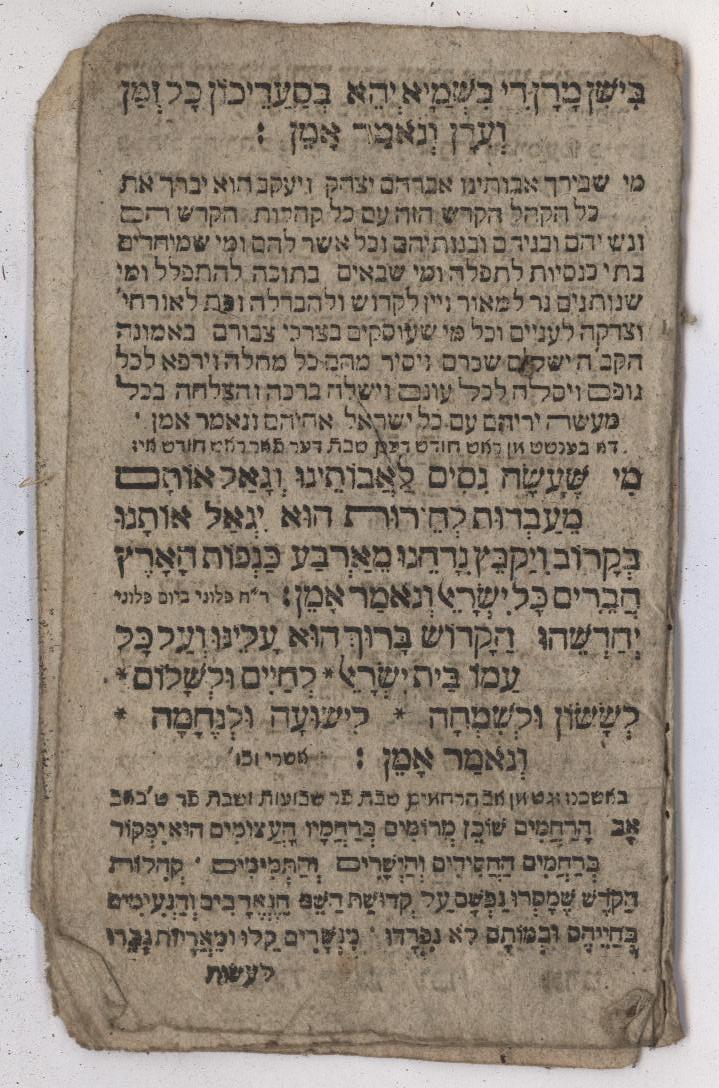 בִּישִׁין מָרָן דִי בִשְׁמַיָא יְהֵא בְּסַעְדֵיכוֹן כָּל זְמַן
וְעִדָן וְנֹאמַר אָמֵן :
מי שבירך אבותינו אברהם יצחק ויעקב הוא יברך את
כל הקהל הקדש הזה עם כל קהלות הקדש הם
ונשיהם ובניהם ובנותיהם וכל אשר להם ומי שמיחדים
בתי כנסיות לתפלה ומי שבאים בתוכה להתפלל ומי
שנותנים נר למאור ויין לקדוש ולהבדלה ופת לאורחי'
וצדקה לעניים וכל מי שעוסקים בצרכי צבורם באמונה
הקב"ה ישלם שכרם ויסיר מהם כל מחלה וירפא לכל
גופם ויסלח לכל עונם וישלח ברכה והצלחה בכל
מעשה ידיהם עם כל ישראל אחיהם ונאמר אמן .
דא בענטט מן ראט חודט דען טבת דער פאר ראט חודט איז
מִי שֶׁעָשָׂה נִסִים לַאֲבוֹתֵינוּ וְגָאַל אוֹתָם
מֵעַבְדוּת לְחֵירוּת הוּא יִגְאַל אוֹתָנוּ
בְּקָרוֹב וִיקַבֵּץ נִדָחֵנוּ מֵאַרְבַּע כַּנְפוֹת הָאָרֶץ
חֲבֵרִים כָּל יִשְׂרָאֵל וְנֹאמַר אָמֵן: ר"ח פלוני ביום פלוני
יְחַדְשֵׁהוּ הַקָדוֹשׁ בָּרוּךְ הוּא עָלֵינוּ וְעַל כָּל
עַמוֹ בֵּית יִשְׂרָאֵל * לְחַיִים וּלְשָׁלוֹם *
לְשָׂשׂוֹן וּלְשִׂמְחָה * לִישׁוּעָה וּלְנֶחָמָה *
וְנֹאמַר אָמֵן : אשרי וכו'
באשכנז זגט מן אב הרחמים טבת פר שבועות וטבת פר ט'באב
אַב הָרַחֲמִים שׁוֹכֵן מְרוֹמִים בְּרַחֲמָיו הָעֲצוּמִים הוּא יִפְקוֹד
בְּרַחֲמִים הַחֲסִידִים וְהַיְשָׁרִים וְהַתְּמִימִים . קְהִלוֹת
הַקֹדֶשׁ שֶׁמָסְרוּ נַפְשָׁם עַל קְדוּשַׁת הַשֵׁם הַנֶאֱהָבִים וְהַנְעִימִים
בְּחַיֵיהֶם וּבְמוֹתָם לֹא נִפְרָדוּ . מִנְשָׁרִים קַלוּ וּמֵאֲרָיוֹת גָבֵרוּ
לעשות